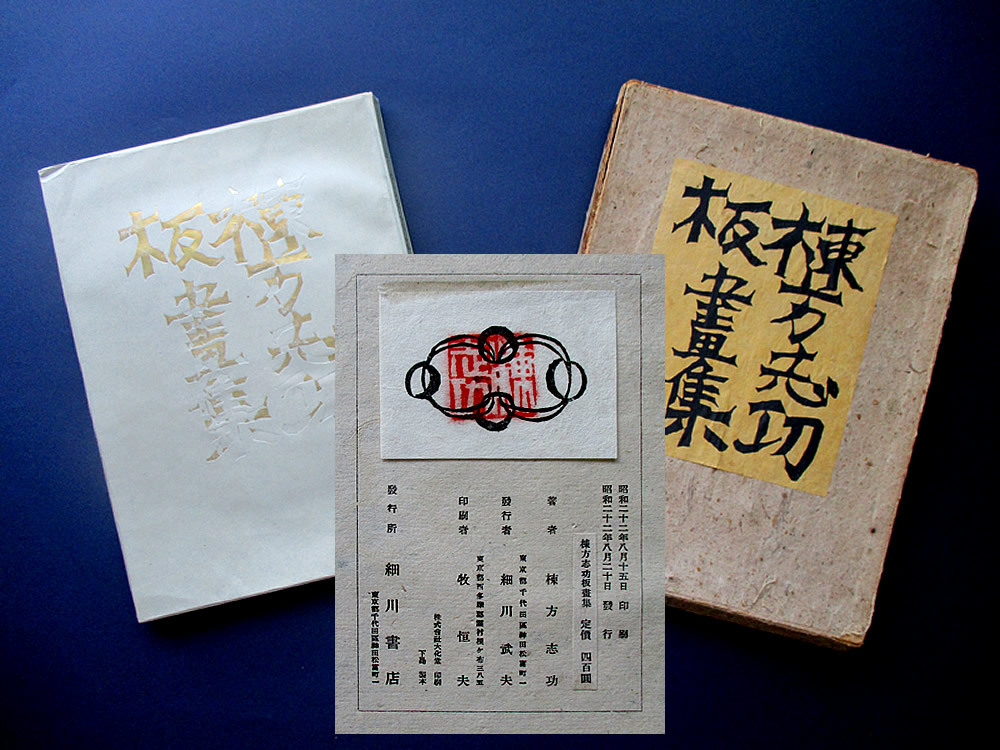 棟方志功
板畫集
棟方志功
板畫集
棟方
昭和二十二年八月十五日 印刷
昭和二十二年八月二十日 發行
棟方志功板畫集 定價 四百圓
著者 棟方志功
東京都千代田區神田松富町一
發行者 細川武夫
東京都西多摩郡霞村根ヶ布三八五
印刷者 牧恒夫
株式會社大化堂 印刷
下島 製本
發行所 細川書店
東京都千代田區神田松富町一